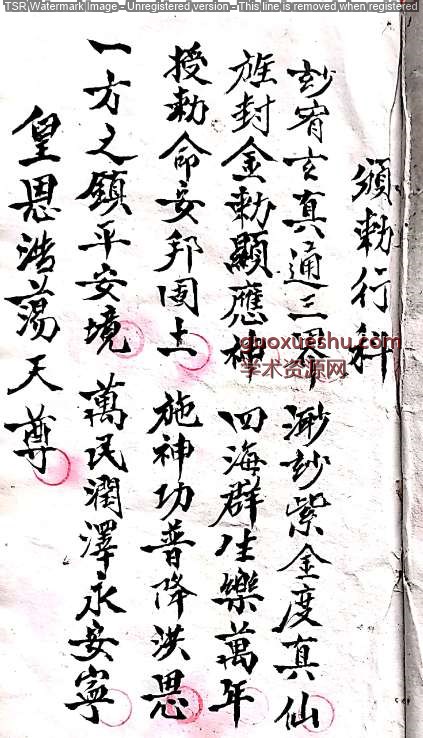 TSR Watermark Image - Unregistered version - This line is removed when registered
頒勅行科
玅宥玄真通三界 渺玅紫金度真仙
旌封金勅顯應神 四海群生樂萬年
授勅命安邦固土 施神功普降洪恩
一方之鎮平安境 萬民潤澤永安寧
皇恩浩蕩天尊
guoxueshu.com
学术资源网